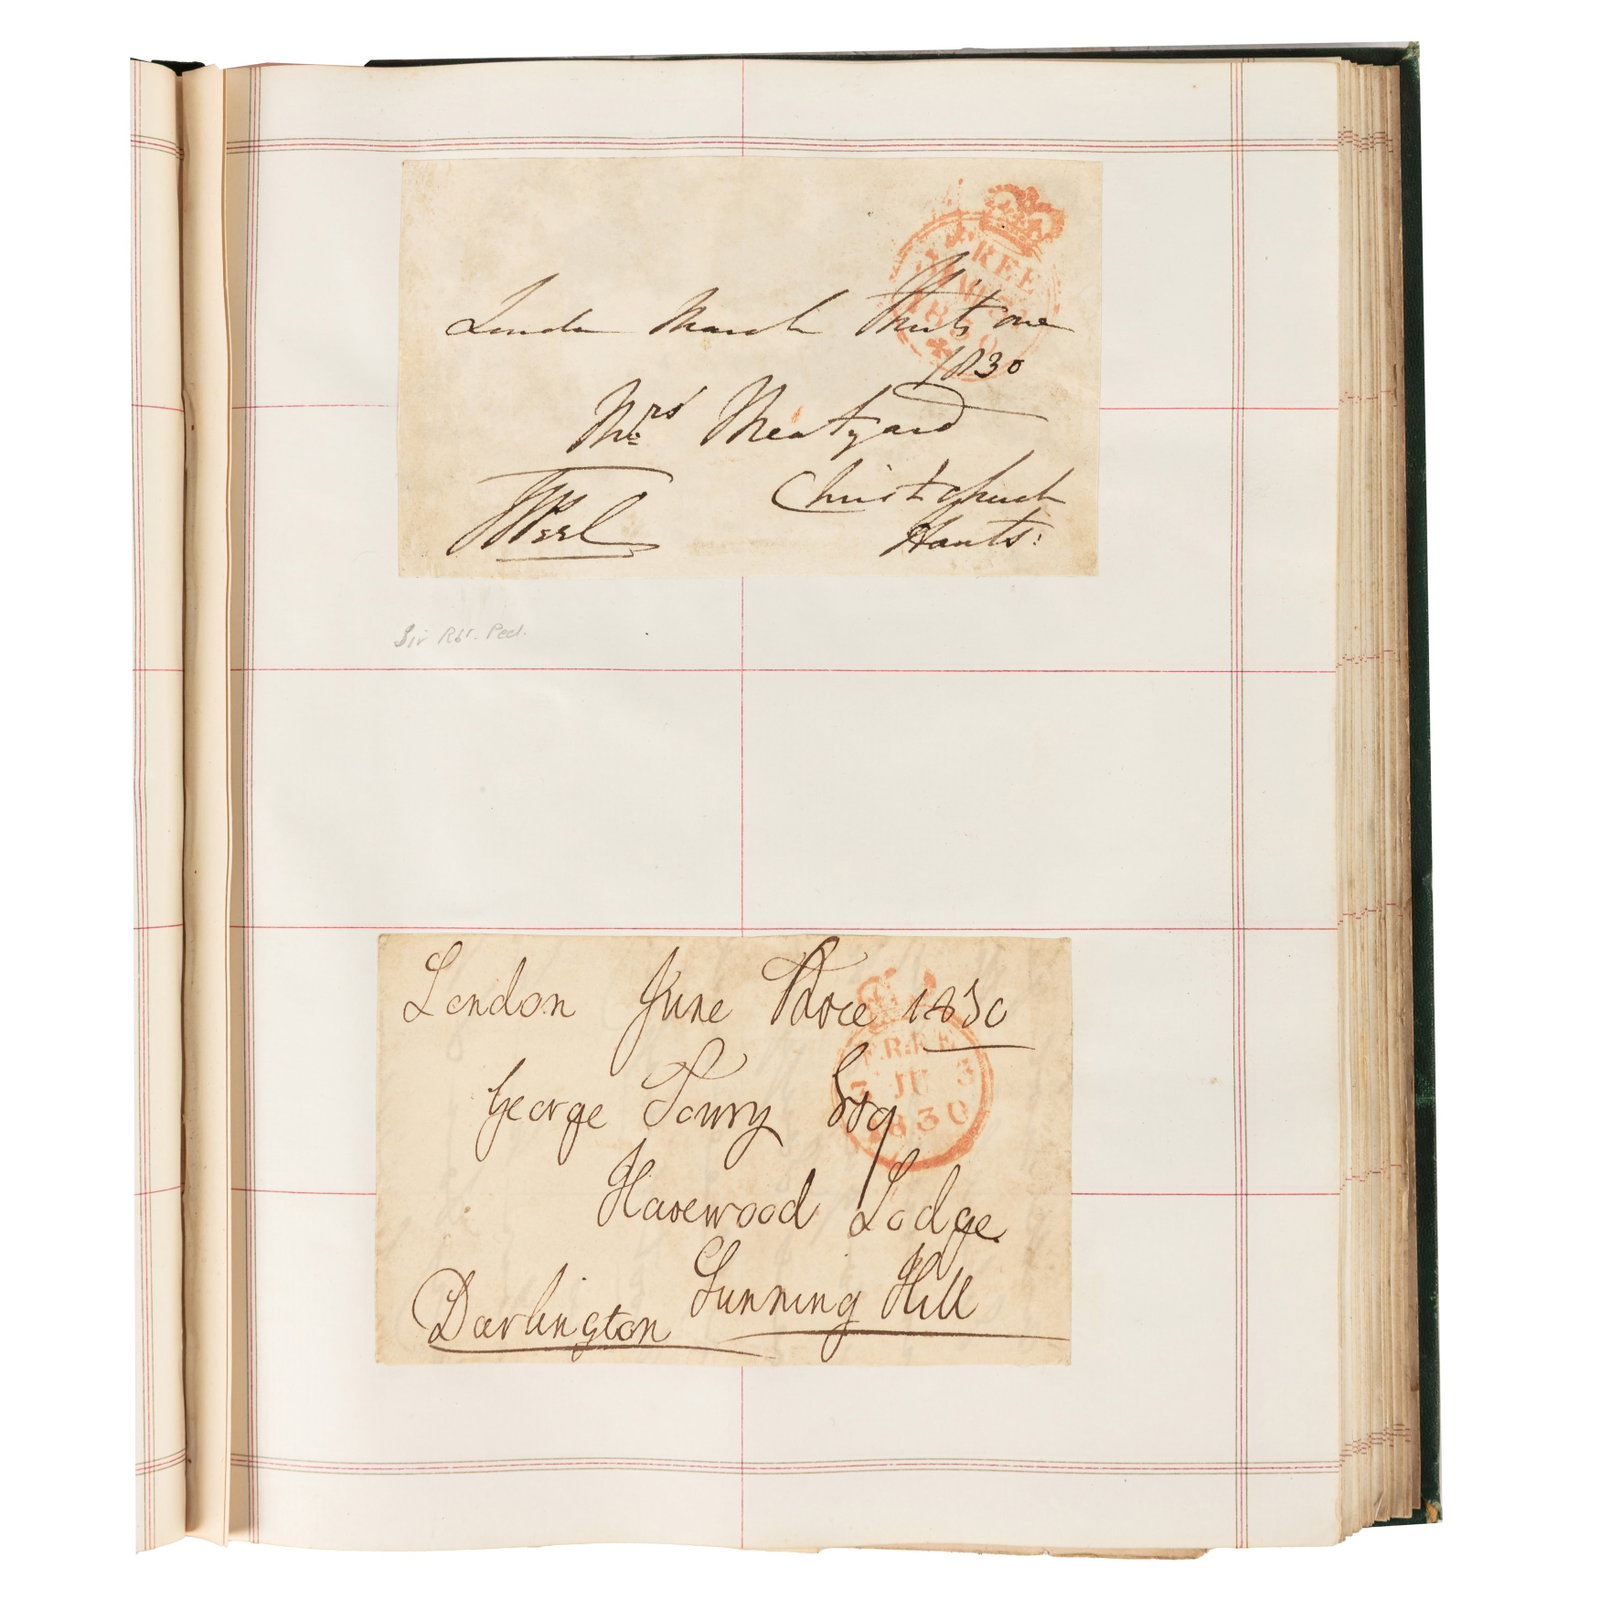 London March Thirty one
1830
Mrs Meatyard
Christchurch
Hants:
Peel
FREE
1830
Sir Rbt. Peel.
London June Three 1830
George Towry Esq
Harewood Lodge
Sunning Hill
Darlington
FREE
3 JU 3
1830